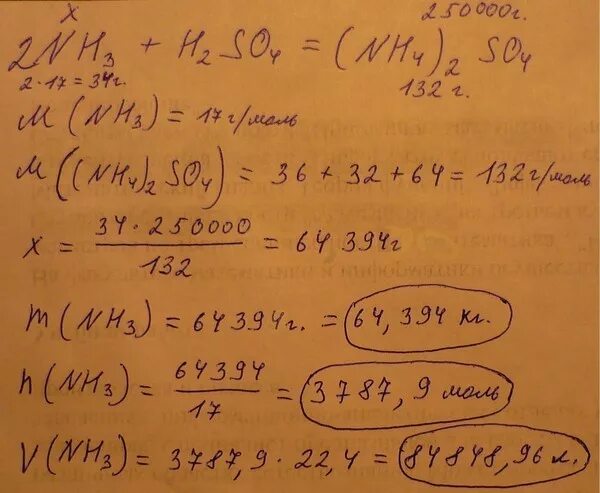 x 250000г.
2NH₃ + H₂SO₄ = (NH₄)₂ SO₄
2·17=34г. 132 г.
M(NH₃) = 17 г/моль
M((NH₄)₂SO₄) = 36 + 32 + 64 = 132 г/моль
x = 34·250000/132 = 64 394 г
m(NH₃) = 64394г. = 64,394 кг.
n(NH₃) = 64394/17 = 3787,9 моль
V(NH₃) = 3787,9·22,4 = 84848,96 л.